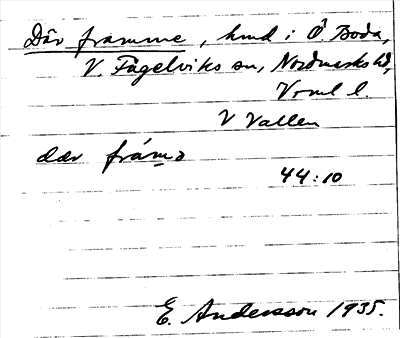 Där framme, hmd i Ö. Boda,
V. Fågelviks sn, Nordmarks hd,
Vrml l.
V Vallen
dær fráma
44:10
E. Andersson 1935.